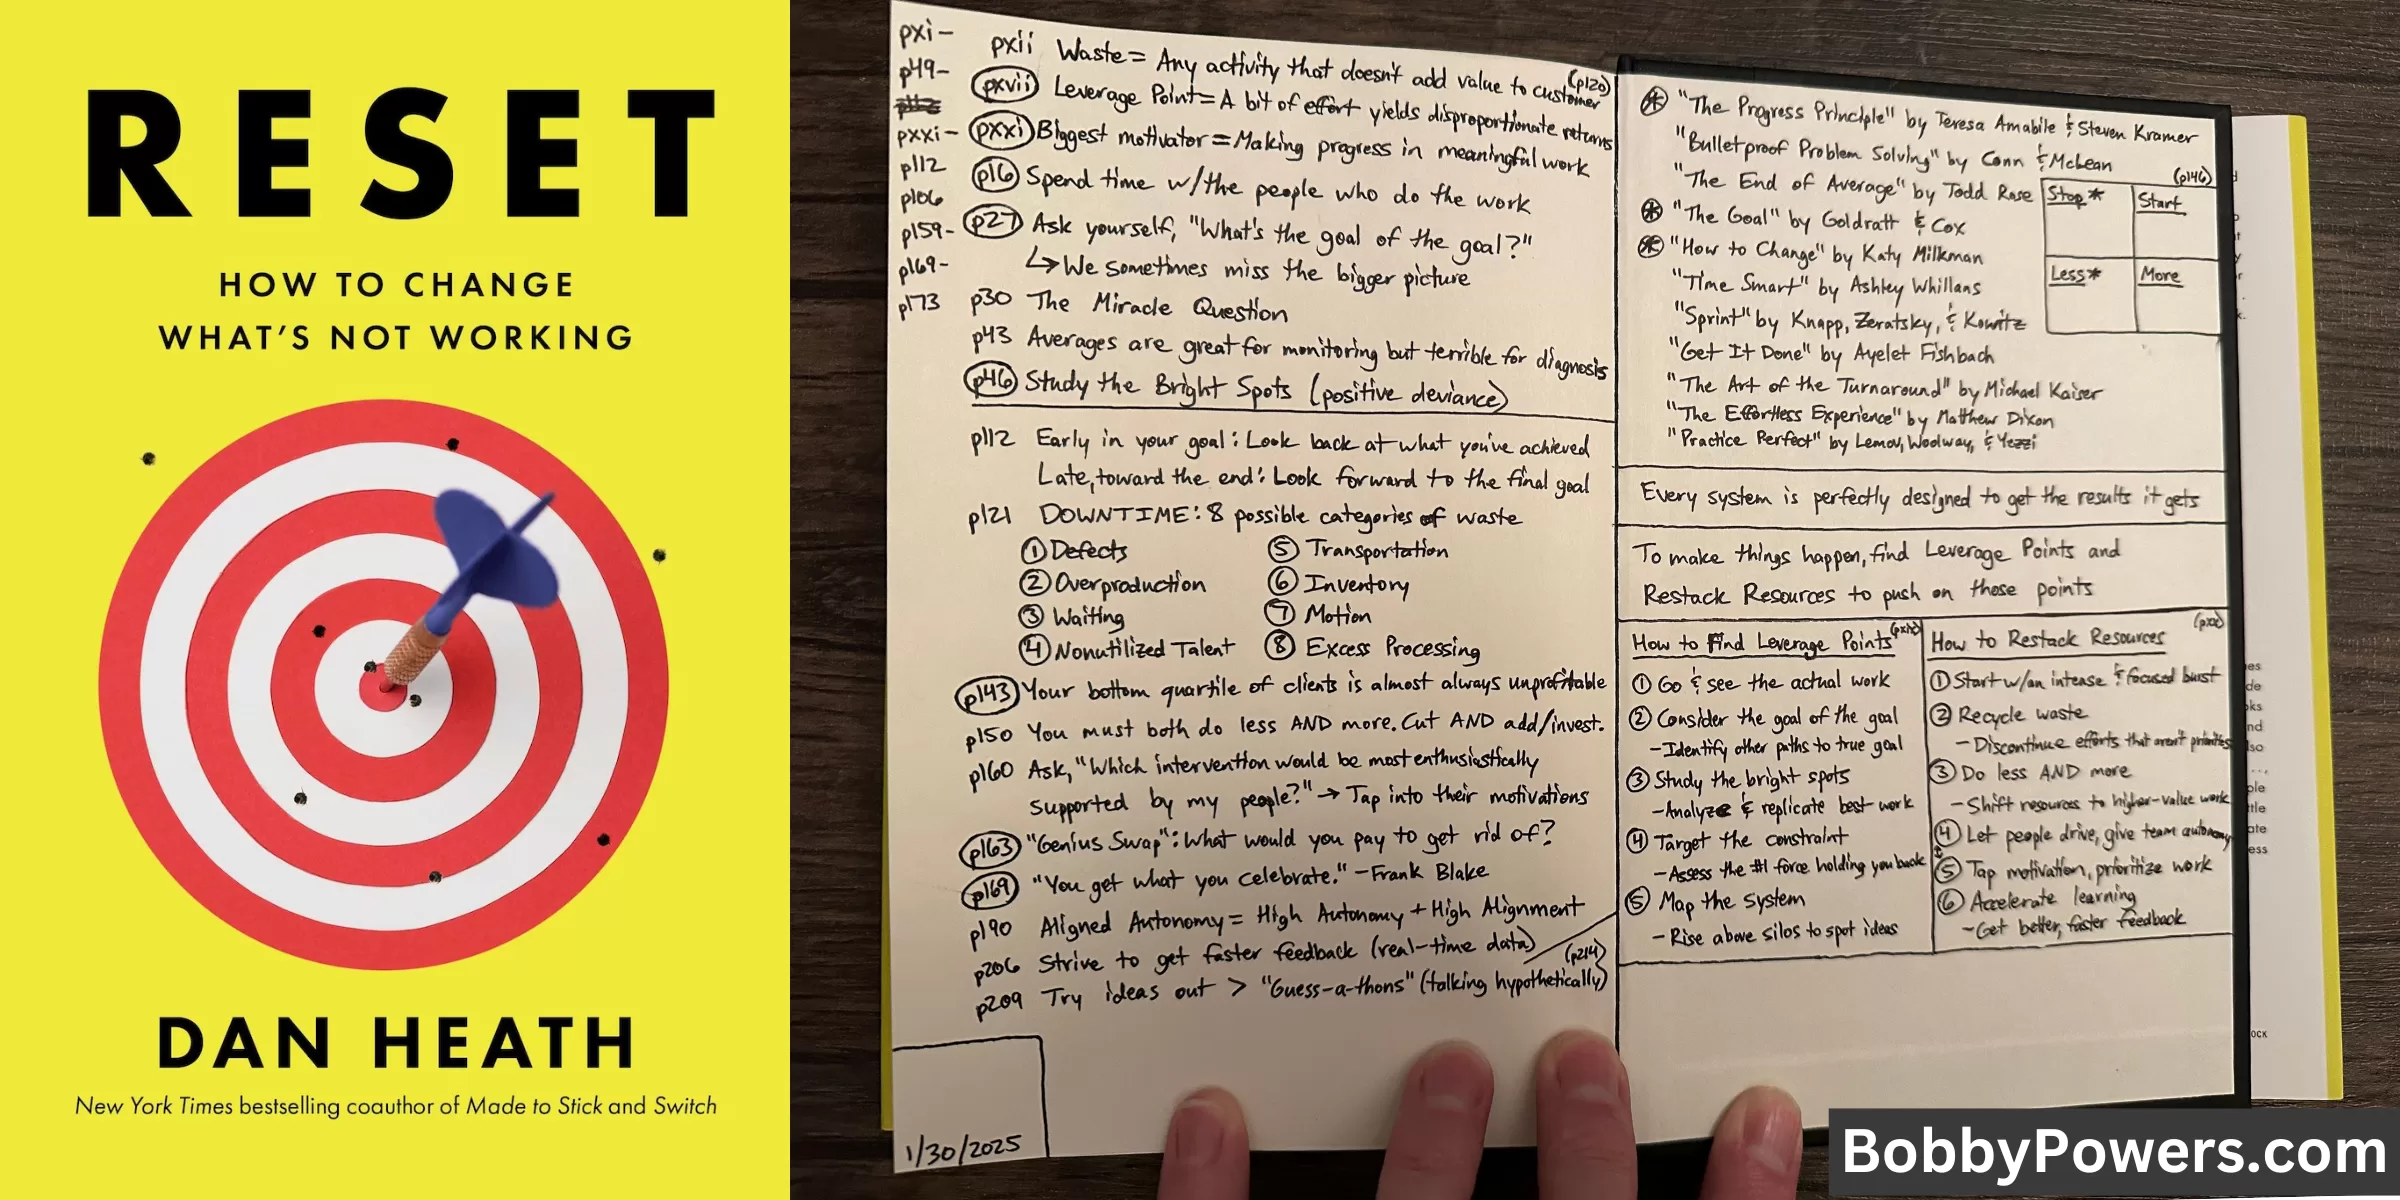 RESET
HOW TO CHANGE
WHAT'S NOT WORKING
DAN HEATH
New York Times bestselling coauthor of Made to Stick and Switch
pxi-
p49-
pxxi-
p112
p106
p159-
p169-
p173
pxii Waste = Any activity that doesn't add value to customer (p120)
pxvii Leverage Point = A bit of effort yields disproportionate returns
pxxi Biggest motivator = Making progress in meaningful work
p16 Spend time w/the people who do the work
p27 Ask yourself, "What's the goal of the goal?"
↳ We sometimes miss the bigger picture
p30 The Miracle Question
p43 Averages are great for monitoring but terrible for diagnosis
p46 Study the Bright Spots (positive deviance)
p112 Early in your goal: Look back at what you've achieved
Late, toward the end: Look forward to the final goal
p121 DOWNTIME: 8 possible categories of waste
① Defects ⑤ Transportation
② Overproduction ⑥ Inventory
③ Waiting ⑦ Motion
④ Nonutilized Talent ⑧ Excess Processing
p143 Your bottom quartile of clients is almost always unprofitable
p150 You must both do less AND more. Cut AND add/invest.
p160 Ask, "Which intervention would be most enthusiastically
supported by my people?" → Tap into their motivations
p163 "Genius Swap": What would you pay to get rid of?
p169 "You get what you celebrate." -Frank Blake
p190 Aligned Autonomy = High Autonomy + High Alignment
p206 Strive to get faster feedback (real-time data)
p209 Try ideas out > "Guess-a-thons" (talking hypothetically) (p214)
1/30/2025
"The Progress Principle" by Teresa Amabile & Steven Kramer
"Bulletproof Problem Solving" by Conn & McLean
"The End of Average" by Todd Rose
"The Goal" by Goldratt & Cox
"How to Change" by Katy Milkman
"Time Smart" by Ashley Whillans
"Sprint" by Knapp, Zeratsky, & Kowitz
"Get It Done" by Ayelet Fishbach
"The Art of the Turnaround" by Michael Kaiser
"The Effortless Experience" by Matthew Dixon
"Practice Perfect" by Lemov, Woolway, & Yezzi
(p146)
Stop* Start
Less* More
Every system is perfectly designed to get the results it gets
To make things happen, find Leverage Points and
Restack Resources to push on those points
How to Find Leverage Points
① Go & see the actual work
② Consider the goal of the goal
-Identify other paths to true goal
③ Study the bright spots
-Analyze & replicate best work
④ Target the constraint
-Assess the #1 force holding you back
⑤ Map the system
-Rise above silos to spot ideas
How to Restack Resources
① Start w/an intense & focused burst
② Recycle waste
-Discontinue efforts that aren't priorities
③ Do less AND more
-Shift resources to higher-value work
④ Let people drive, give team autonomy
⑤ Tap motivation, prioritize work
⑥ Accelerate learning
-Get better, faster feedback
BobbyPowers.com